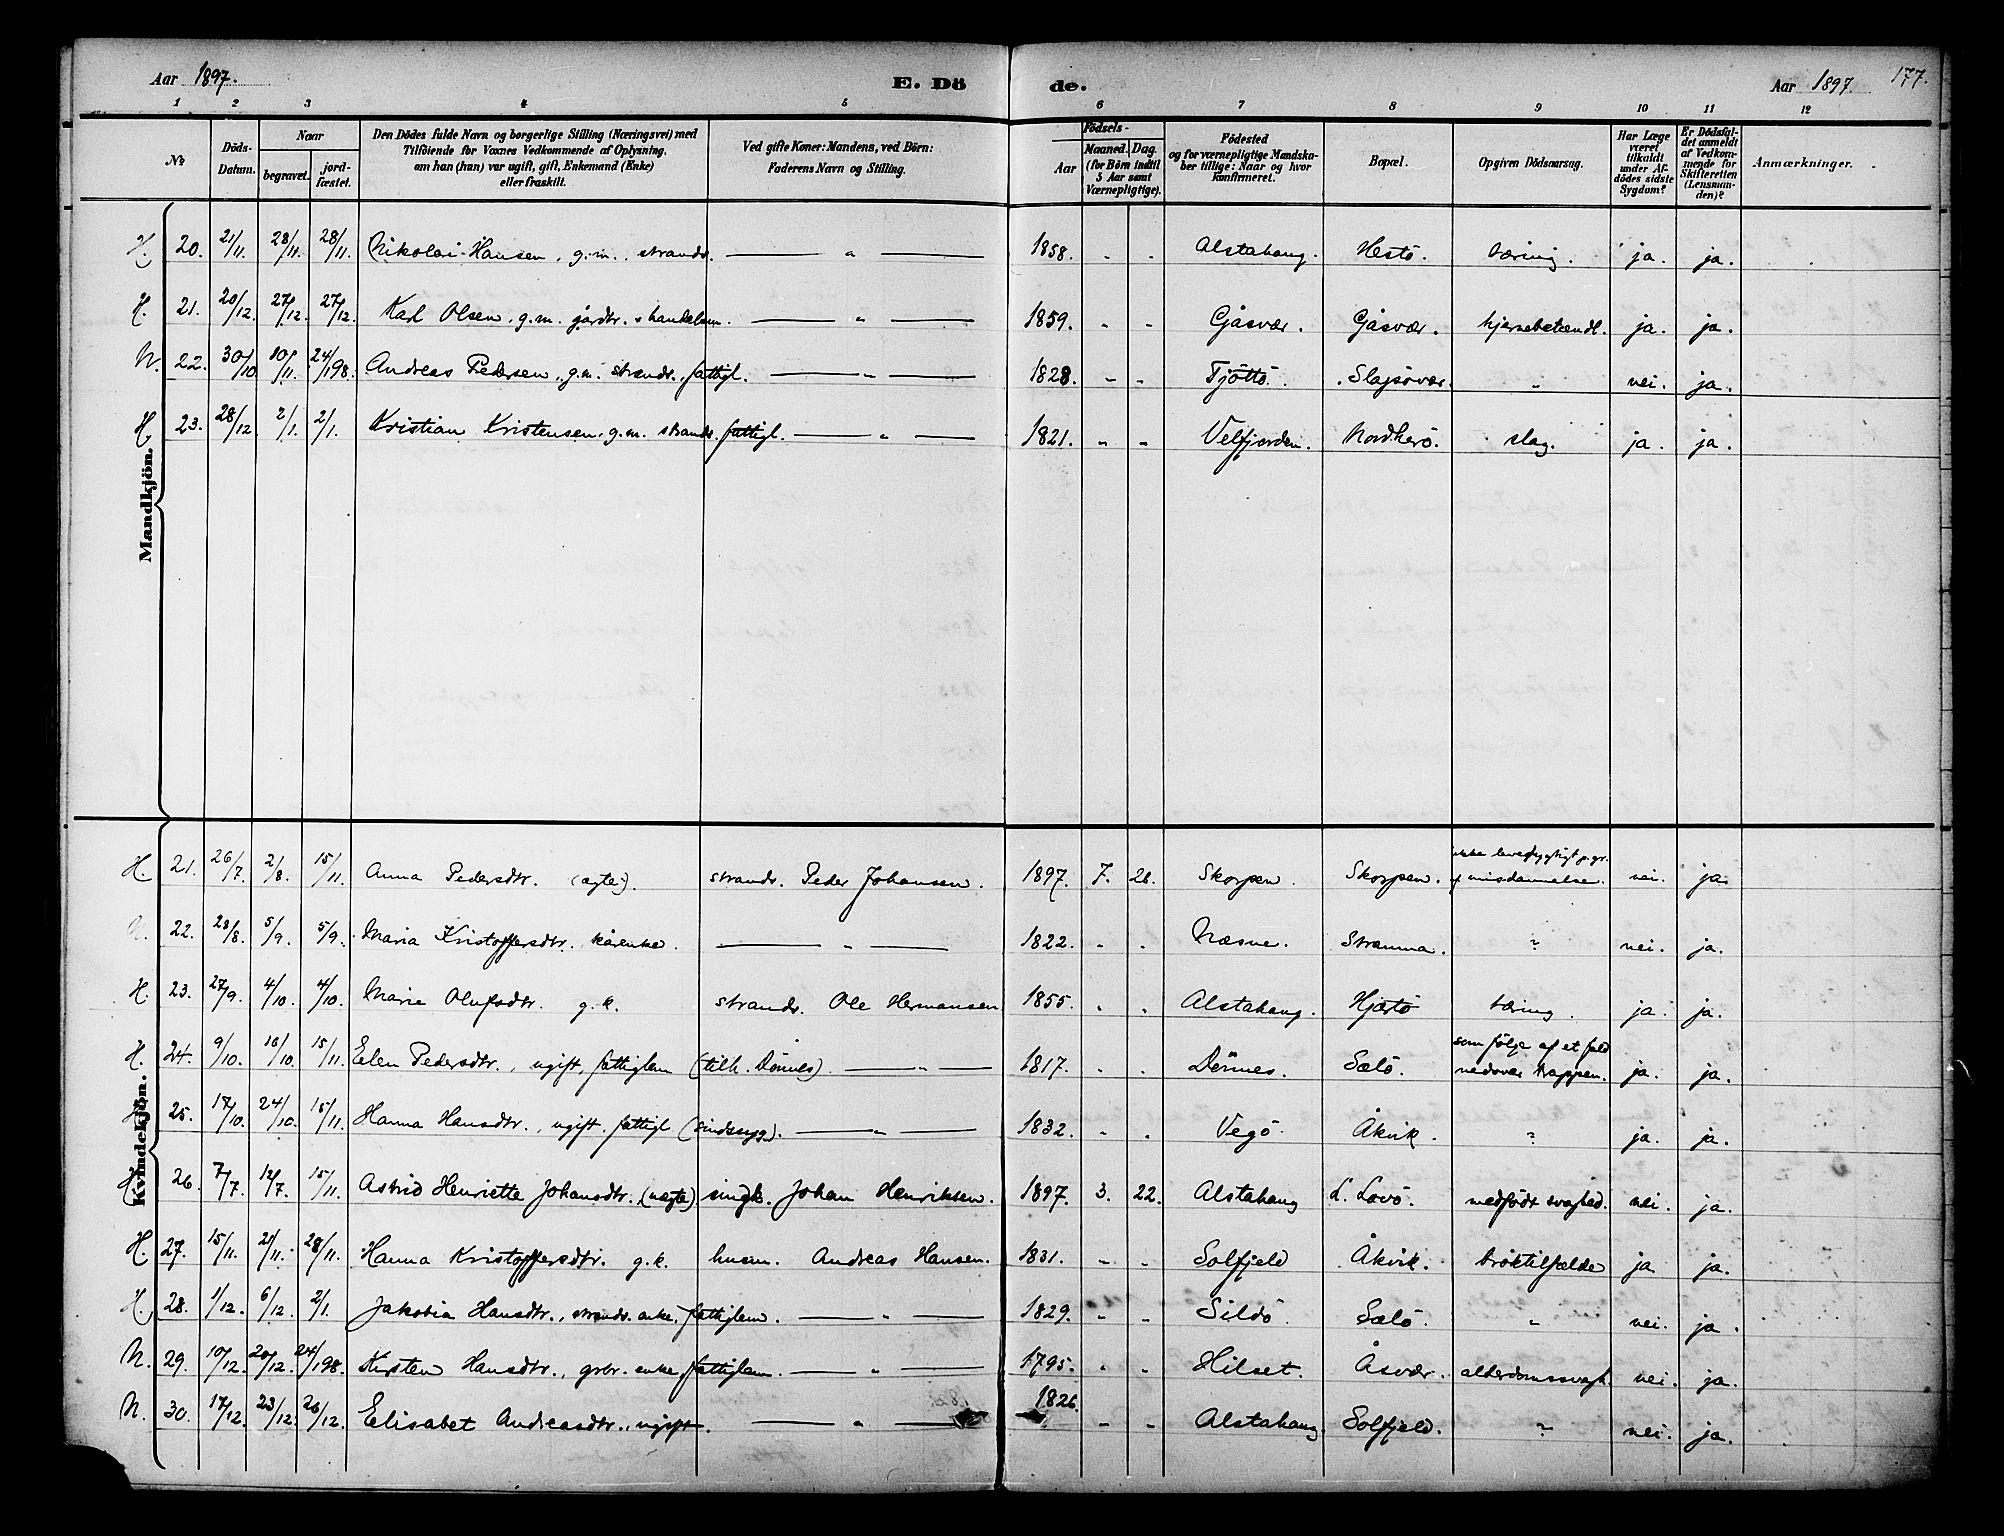 Aar 1897. E. Dö de. Aar 1897. 177.
1 2 3 4 5 6 7 8 9 10 11 12
No
Döds-Datum.
Naar
begravet.
jord-fæstet.
Den Dödes fulde Navn og borgerlige Stilling (Næringsvei) med
Tilföiende for Voxnes Vedkommende af Oplysning,
om han (hun) var ugift, gift, Enkemand (Enke)
eller fraskilt.
Ved gifte Koner: Mandens, ved Börn:
Faderens Navn og Stilling.
Födsels-
Aar
Maaned. Dag.
(for Börn indtil
5 Aar samt
Værnepligtige).
Födested
og for værnepligtige Mandska-
ber tillige: Naar og hvor
konfirmeret.
Bopæl.
Opgiven Dödsaarsag.
Har Læge
været
tilkaldt
under Af-
dödes sidste
Sygdom?
Er Dödsfal-
det anmeldt
af Vedkom-
mende for
Skifteretten
(Lensman-
den)?
Anmærkninger.
Mandkjön.
H. 20. 21/11. 28/11. 28/11. Nikolai Hansen, g.m., strandr. — " — 1858. " " Alstahaug. Hestö. tæring. ja. ja.
H. 21. 20/12. 27/12. 27/12. Karl Olsen, g.m. gårdbr. & handelsm. — " — 1859. " " Gåsvær. Gåsvær. hjernebetændl. ja. ja.
N. 22. 30/10 10/11. 24/1 98. Andreas Pedersen, g.m. strandr., fattigl. — " — 1828. " " Tjöttö. Slapövær. " nei. ja.
H. 23. 28/12. 2/1. 2/1. Kristian Kristensen, g.m. strandr. fattigl. — " — 1821. " " Velfjorden. Nordherö. slag. ja. ja.
Kvindekjön.
H. 21. 26/7. 2/8. 15/11. Anna Pedersdtr. (ægte). strandr. Peder Johansen. 1897. 7. 26. Skorpen. Skorpen. ikke levedygtigt p. gr. af misdannelse. nei. ja.
N. 22. 28/8. 5/9. 5/9. Maria Kristoffersdtr. kårenke. — " — 1822. " " Næsne. Stramma. " nei. ja.
H. 23. 27/9. 4/10. 4/10. Marie Olufsdtr. g.k. strandr. Ole Hermansen 1855. " " Alstahaug. Hjærtö tæring. ja. ja.
H. 24. 9/10. 16/10. 15/11. Elen Pedersdtr., ugift, fattiglem (tilh. Dönnes). — " — 1817. " " Dönnes. Sælö. som fölge af et fald nedover trappen. ja. ja.
H. 25. 17/10. 24/10. 15/11. Hanna Hansdtr., ugift, fattigl (sindssyg). — " — 1832. " " Vegö. Åkvik. " ja. ja.
H. 26. 7/7. 12/7. 15/11. Astrid Henriette Johansdtr. (uægte) ungk. Johan Henriksen. 1897. 3. 22. Alstahaug L. Lovö. medfödt svaghed. nei. ja.
H. 27. 15/11. 21/11. 28/11. Hanna Kristoffersdtr. g.k. husm. Andreas Hansen. 1831. " " Solfjeld Åkvik. broktilfælde ja ja.
H. 28. 1/12. 6/12. 2/1. Jakobia Hansdtr., strandr. enke, fattiglem. — " — 1829. " " Sildö. Sælö. " nei. ja.
N. 29. 10/12. 20/12. 24/1 98. Kirsten Hansdtr., grbr. enke, fattiglem. — " — 1795. " " Hilset. Åsvær. alderdomssvagh. nei. ja.
N. 30. 17/12. 23/12. 26/12. Elisabet Andreasdtr., ugift. — " — 1826. " " Alstahaug. Solfjeld. " nei. ja.